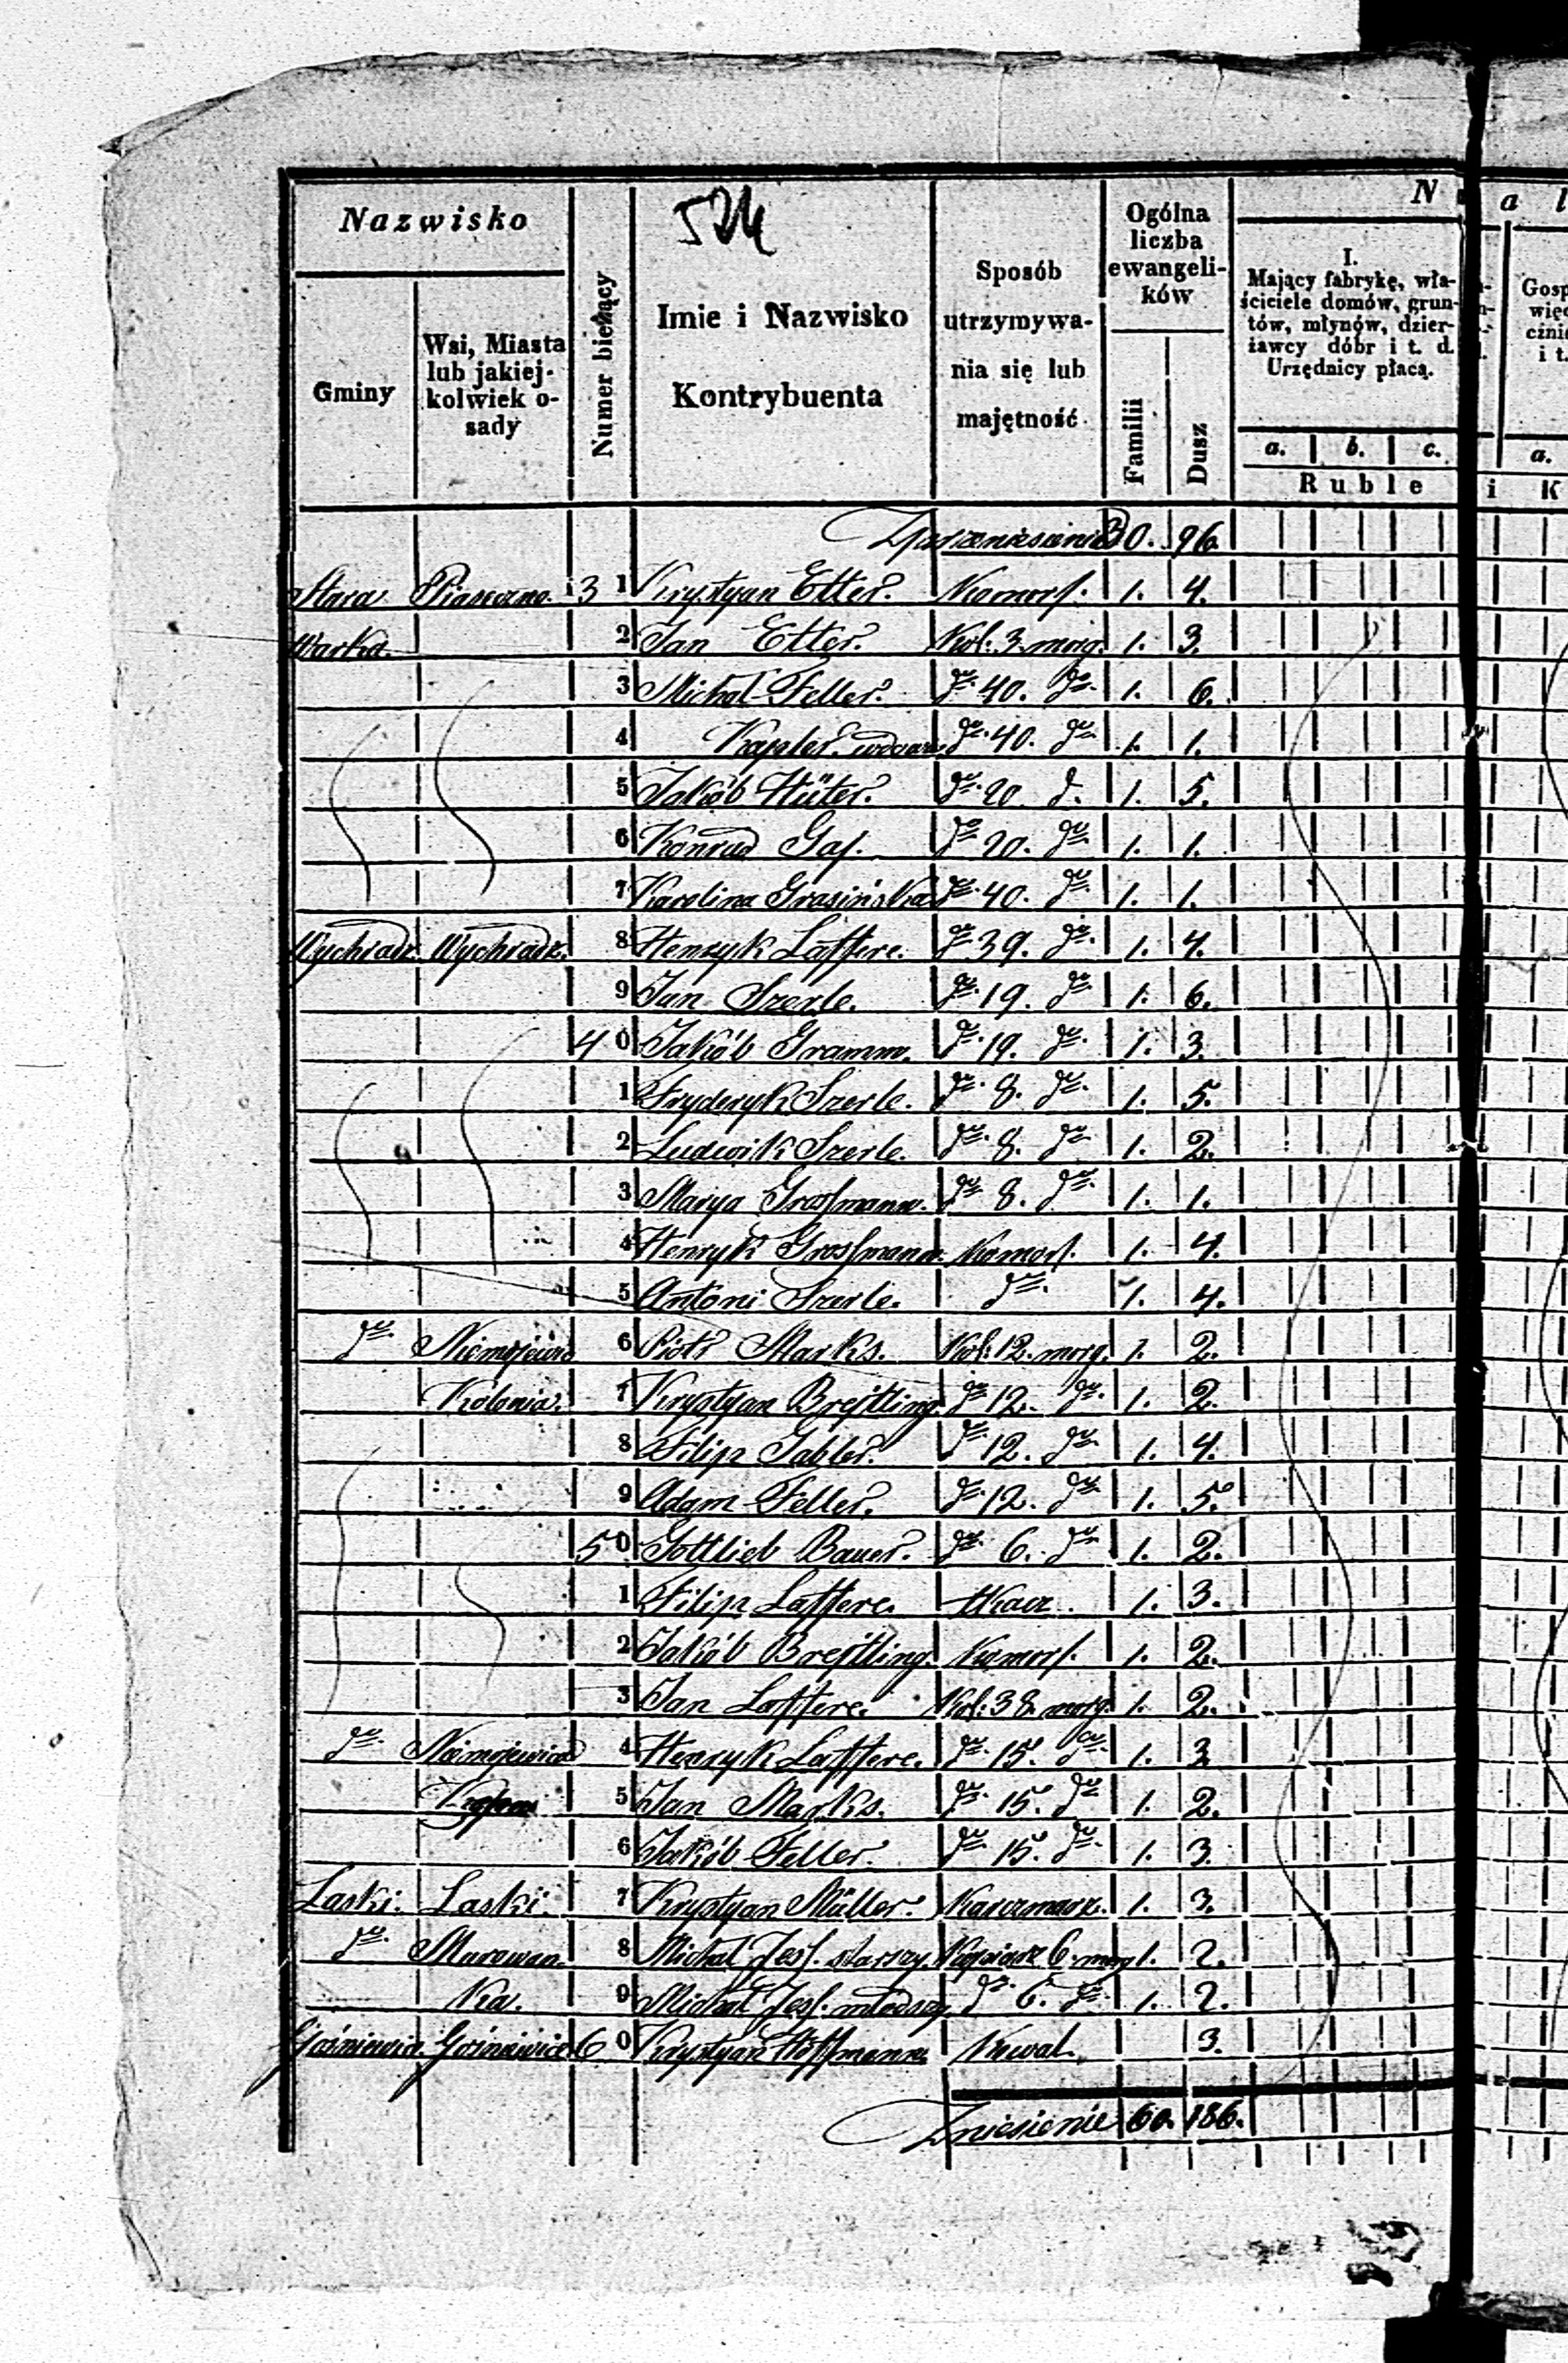 Nazwisko
Gminy
Wsi, Miasta lub jakiej-kolwiek o-sady
Numer bieżący
524
Imie i Nazwisko Kontrybuenta
Sposób utrzymywa-nia się lub majętność
Ogólna liczba ewangeli-ków
Familii
Dusz
N a l
I. Mający fabrykę, wła-ściciele domów, grun-tów, młynów, dzier-żawcy dóbr i t. d. Urzędnicy płacą.
a. b. c.
Ruble i K
Z przeniesienia 30. 96.
Stara Piaseczno. 31 Krystyan Etter. Komor. 1. 4.
Warka. 2 Jan Etter. Kol. 3. morg. 1. 3.
3 Michał Feller. do 40. do 1. 6.
4 Kapler. wdowa do 40. do 1. 1.
5 Jakób Hüter. do 20 d. 1. 5.
6 Konrad Gas. do 20. do 1. 1.
7 Karolina Grasińska do 40. do 1. 1.
Wychradz. Wychradz. 8 Henryk Laffere. do 39. do 1. 4.
9 Jan Szerle. do 19. do 1. 6.
40 Jakób Gramm. do 19. do 1. 3.
1 Fryderyk Szerle. do 8. do 1. 5.
2 Ludwik Szerle. do 8. do 1. 2.
3 Marya Grossmann. do 8. do 1. 1.
4 Henryk Grossmann. Komor. 1. 4.
5 Antoni Szerle. do 1. 4.
do Niemojewic 6 Piotr Marks. Kol. 12. morg. 1. 2.
Kolonia. 7 Krystyan Brejtling. do 12. do 1. 2.
8 Filip Gabler. do 12. do 1. 4.
9 Adam Feller. do 12. do 1. 5.
50 Gottlieb Bauer. do 6. do 1. 2.
1 Filip Laffere. tkacz. 1. 3.
2 Jakób Brejtling. Komor. 1. 2.
3 Jan Laffere. Kol. 38. morg. 1. 2.
do Niemojewice 4 Henryk Laffere. do 15. do 1. 3
5 Jan Marks. do 15. do 1. 2.
6 Jakób Feller. do 15. do 1. 3.
Laski. Laski. 7 Krystyan Müller. Karczmarz. 1. 3.
do Murowan 8 Michał Jess. starszy. 6. morg 1. 2.
ka. 9 Michał Jess. młodszy do 6. do 1. 2.
Goźniewic. Goźniewice 60 Krystyan Hoffmann Kowal. 3.
Zniesienie 60. 186.